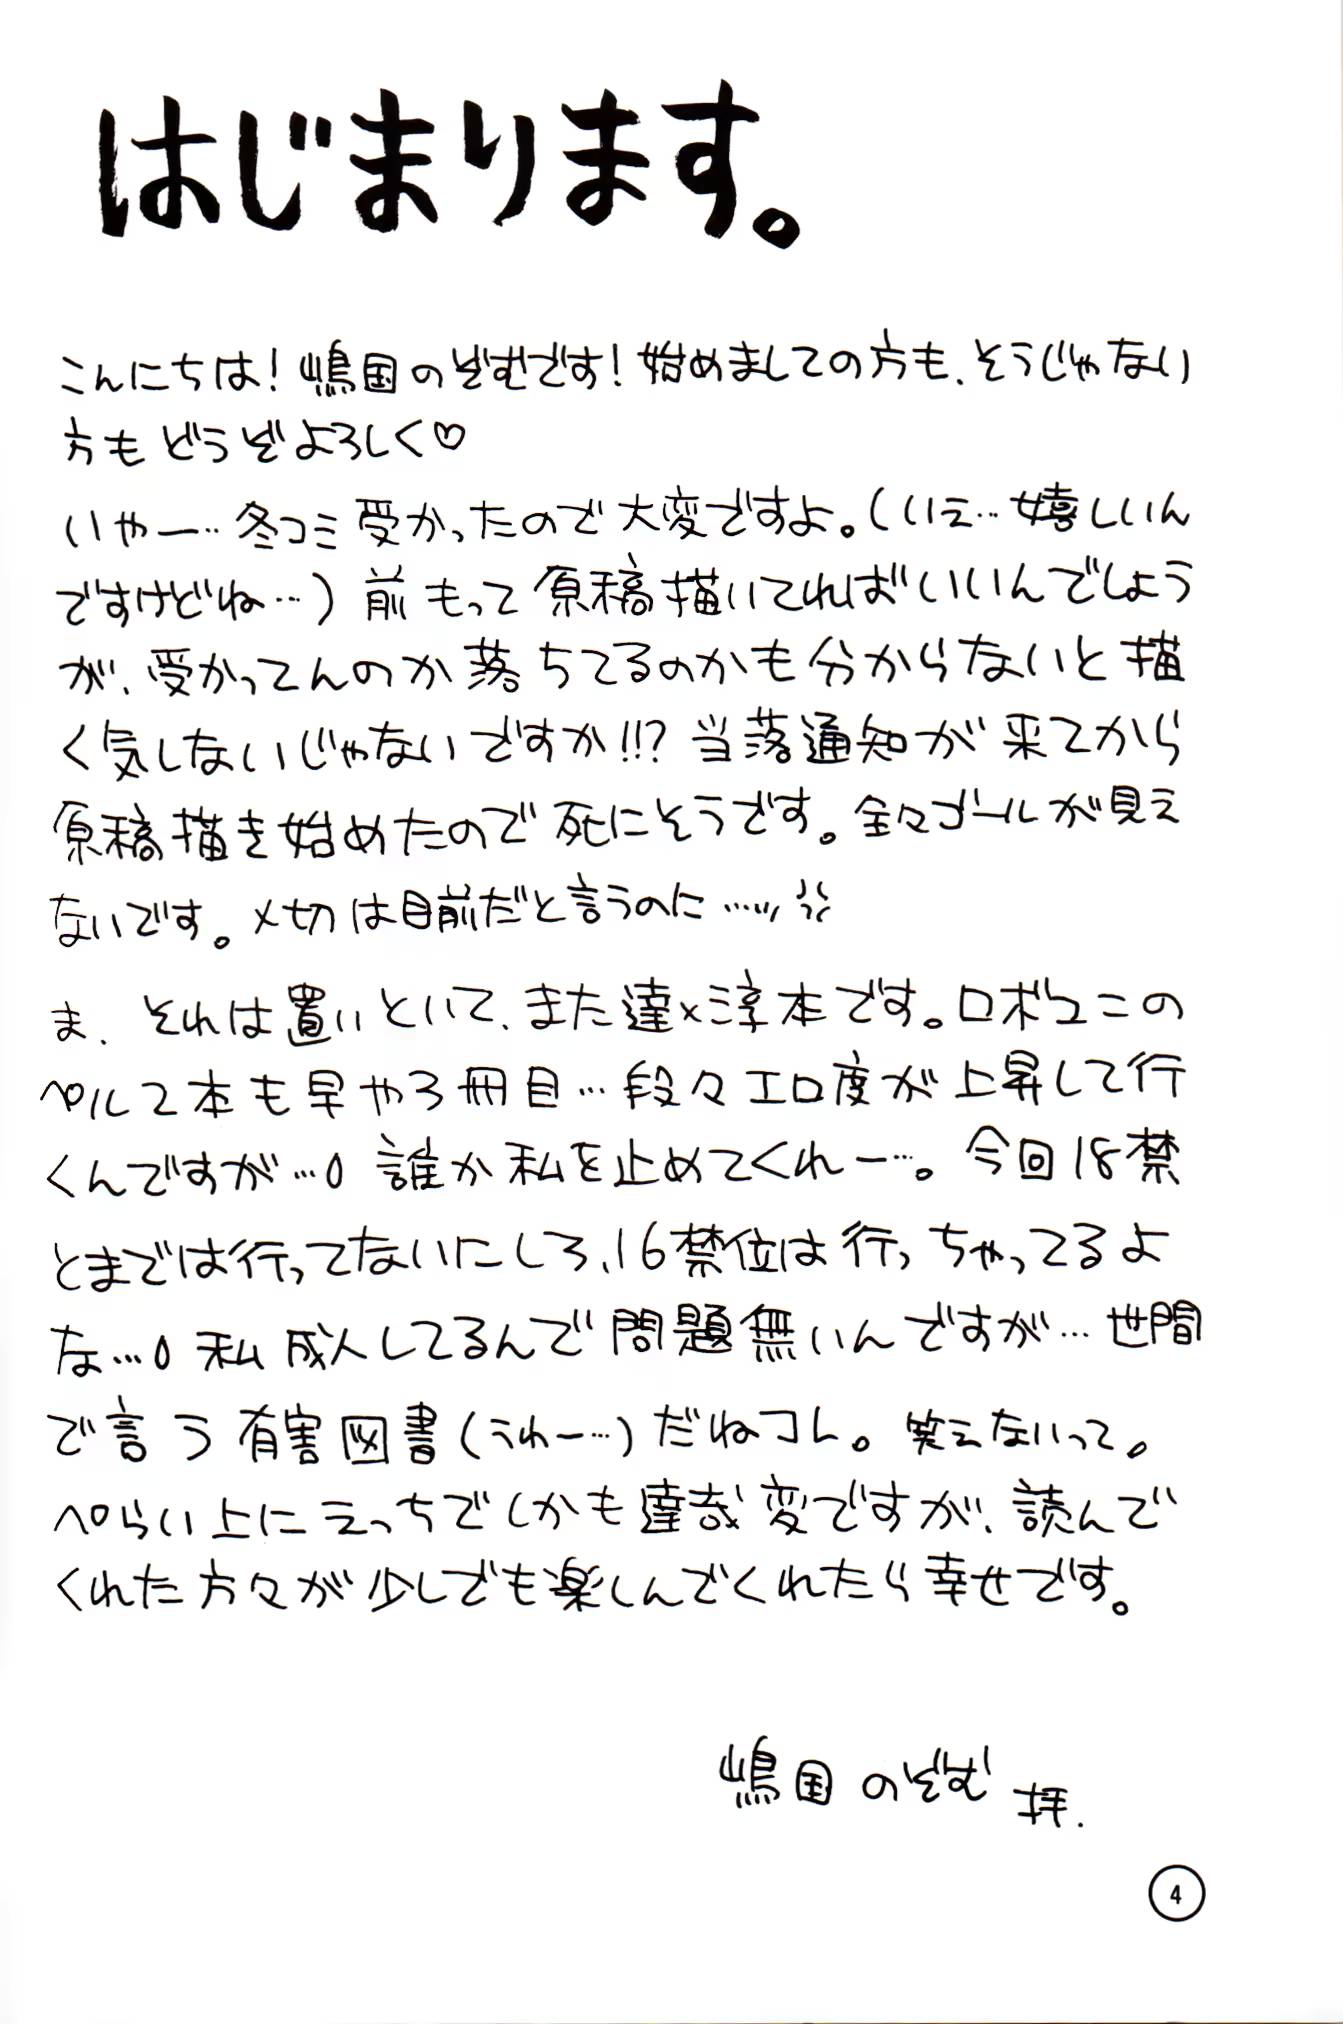 はじまります。
こんにちは!嶋国のぞむです!始めましての方も、そうじゃない
方もどうぞよろしく♡
いやー…冬コミ受かったので大変ですよ。(いえ…嬉しいん
ですけどね…)前もって原稿描いてればいいんでしょう
が、受かってんのか落ちてるのかも分からないと描
く気しないじゃないですか!!?当落通知が来てから
原稿描き始めたので死にそうです。全々ゴールが見え
ないです。〆切は目前だと言うのに……
ま、それは置いといて、また達×淳本です。ロボユニの
ペルソ本も早や3冊目…段々エロ度が上昇して行
くんですが…誰か私を止めてくれー…。今回18禁
とまでは行ってないにしろ、16禁位は行っちゃってるよ
な…私成人してるんで問題無いんですが…世間
で言う有害図書(うわー…)だねコレ。笑えないって。
ぺらい上にえっちでしかも達哉変ですが、読んで
くれた方々が少しでも楽しんでくれたら幸せです。
嶋国のぞむ 拝.
4